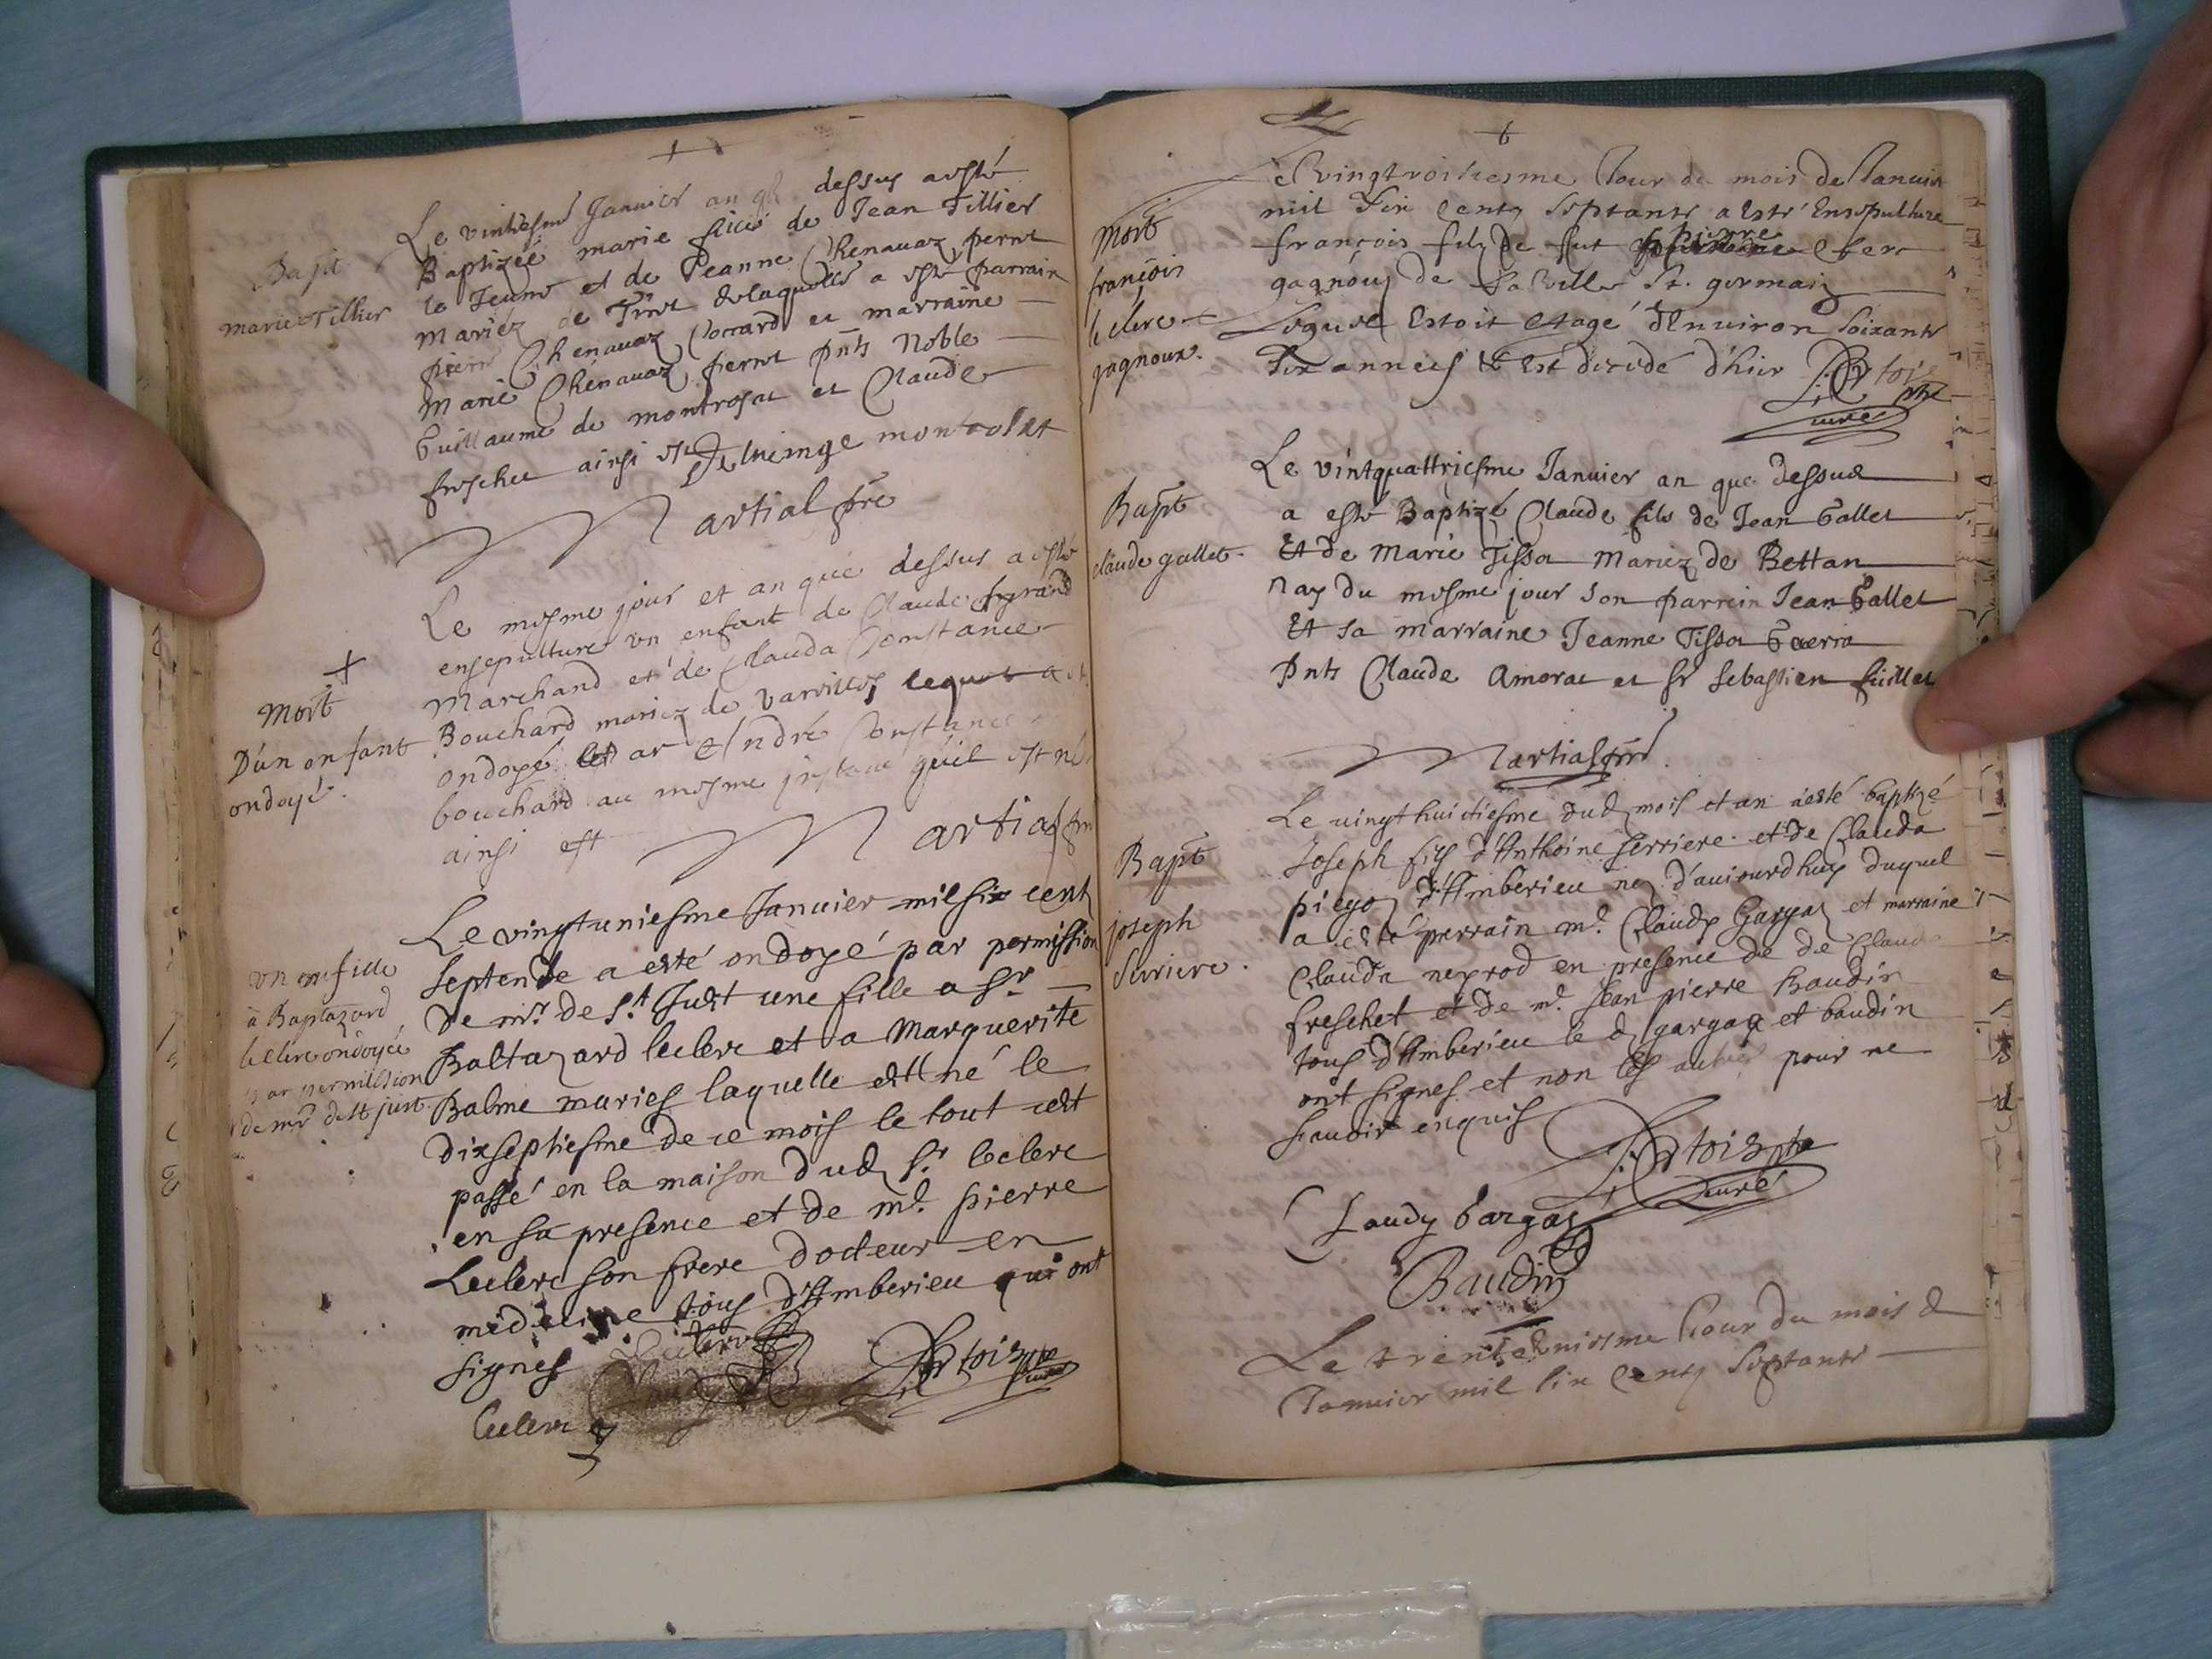 Bapt
marie Tillier
Le vintiesme Januier an q dessus a esté
Baptizeé marie fille de Jean Tillier
le Jeune et de Jeanne Chenauaz
mariéz de delaquelle a esté parrain
pierre Chenauaz et marraine
Marie Chenauaz pnts Noble
Guillaume de montrosat et Claude
freschet ainsi est
Martial pre
+
Mort
D'un enfant
ondoyé.
Le mesme jour et an que dessus a esté
ensepulturé vn enfant de Claude
Marchand et de Clauda Constance
Bouchard mariez de Vareilles lequel a
ondoyé par André Constance
bouchard au mesme instant qu'il est né
ainsi est
Martial
vn
à Baptazard
leclerc ondoyée
par permission
de mr de st just
Le vingtuniesme Januier mil six cent
septende a esté ondoyé par permission
De mr. de St. Just une fille a Sr
Baltazard leclerc et a Marguerite
Balme maries laquelle est né le
dixseptiesme de ce mois le tout
passé en la maison dud Sr leclerc
en sa presence et de mr. pierre
Leclerc son frere docteur en
medecine tous d'Amberieu qui ont
signes
Leclerc
Artois pbre
curé
leclerc
+
Mort
françois
le clerc
gagnoux.
Le vingtroisiesme Jour du mois de Januier
mil six cents septante a esté Ensepulturé
françois filz de fut pierre clerc
gagnoux de la ville St. germain
Lequel Estoit Eagé d'Enuiron soixante
six années & Est decedé d'hier
Artois
pbre
curé
Bapt
claude gallet.
Le vintquattriesme Januier an que dessus
a esté Baptizé Claude fils de Jean Gallet
Et de Marie Tissot Mariez de Bettan
nay du mesme jour son parrein Jean Gallet
Et sa marraine Jeanne Tissot
Pnts Claude Amorat et Sr Sebastien
Martial pre
Bapt
joseph
serriere.
Le uingt huictiesme dud mois et an a esté baptizé
Joseph fils d'Anthoine serriere et de Clauda
d'Amberieu nez d'auiourdhuy duquel
a esté perrain mr. Claudy Gargaz et marraine
Clauda neyrod en presence de de Claude
freschet et de mr. Jean pierre Baudin
tous d'Amberieu le d gargaz et baudin
ont signes et non les autres pour ne
scauoir enquis
Artois pbre
curé
Claudy Gargaz
Baudin
Le trente Vniesme Jour du mois de
Januier mil six cents septante